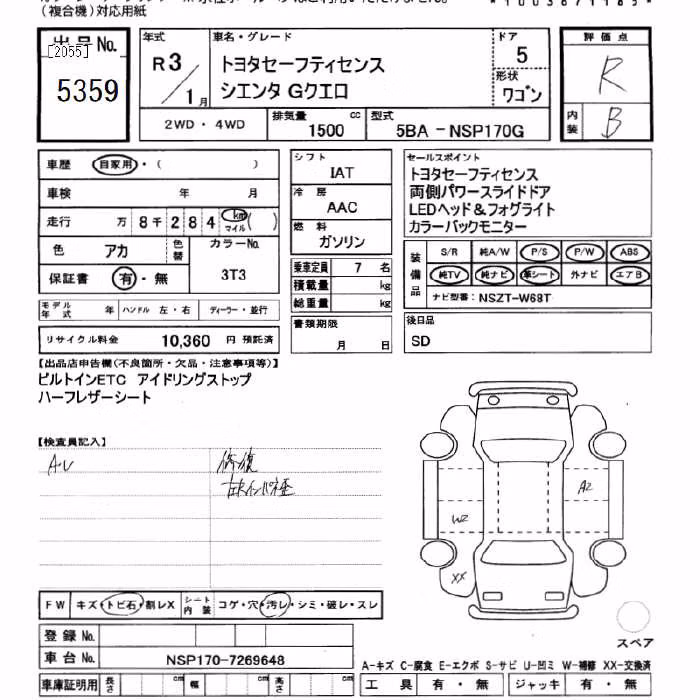 (複合機)対応用紙
出品No.
[2055]
5359
年式
R3
/1月
車名・グレード
トヨタセーフティセンス
シエンタ Gクエロ
ドア
5
形状
ワゴン
評価点
R
内装
B
2WD・4WD
排気量
cc
1500
型式
5BA - NSP170G
車歴
自家用・( )
車検
年 月
走行
万 8千 2 8 4 km マイル ( )
色
アカ
色替
カラーNo.
3T3
保証書
有・無
モデル年式
年
ハンドル 左・右
ディーラー・並行
リサイクル料金
10,360 円 預託済
シフト
IAT
冷房
AAC
燃料
ガソリン
乗車定員 7 名
積載量 kg
総重量 kg
書類期限
月 日
セールスポイント
トヨタセーフティセンス
両側パワースライドドア
LEDヘッド&フォグライト
カラーバックモニター
装備品
S/R 純A/W P/S P/W ABS
純TV 純ナビ 革シート 外ナビ エアB
ナビ型番: NSZT-W68T
後日品
SD
【出品店申告欄(不良箇所・欠品・注意事項等)】
ビルトインETC アイドリングストップ
ハーフレザーシート
【検査員記入】
AU
修復
左Rインパネ歪
A2
W2
XX
スペア
FW キズ・トビ石・割レX
シート内装 コゲ・穴・汚レ・シミ・破レ・スレ
登録No.
車台No.
NSP170-7269648
車庫証明用 長さ cm 幅 cm 高さ cm
A-キズ C-腐食 E-エクボ S-サビ U-凹ミ W-補修 XX-交換済
工具 有・無 ジャッキ 有・無